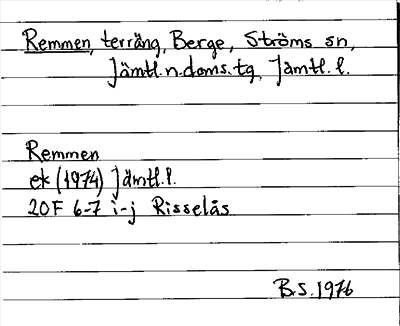 Remmen, terräng, Berge, Ströms sn,
Jämtl.n.doms.tg, Jämtl.l.
Remmen
ek (1974) Jämtl.l.
20F 6-7 i-j Risselås
B.S. 1976